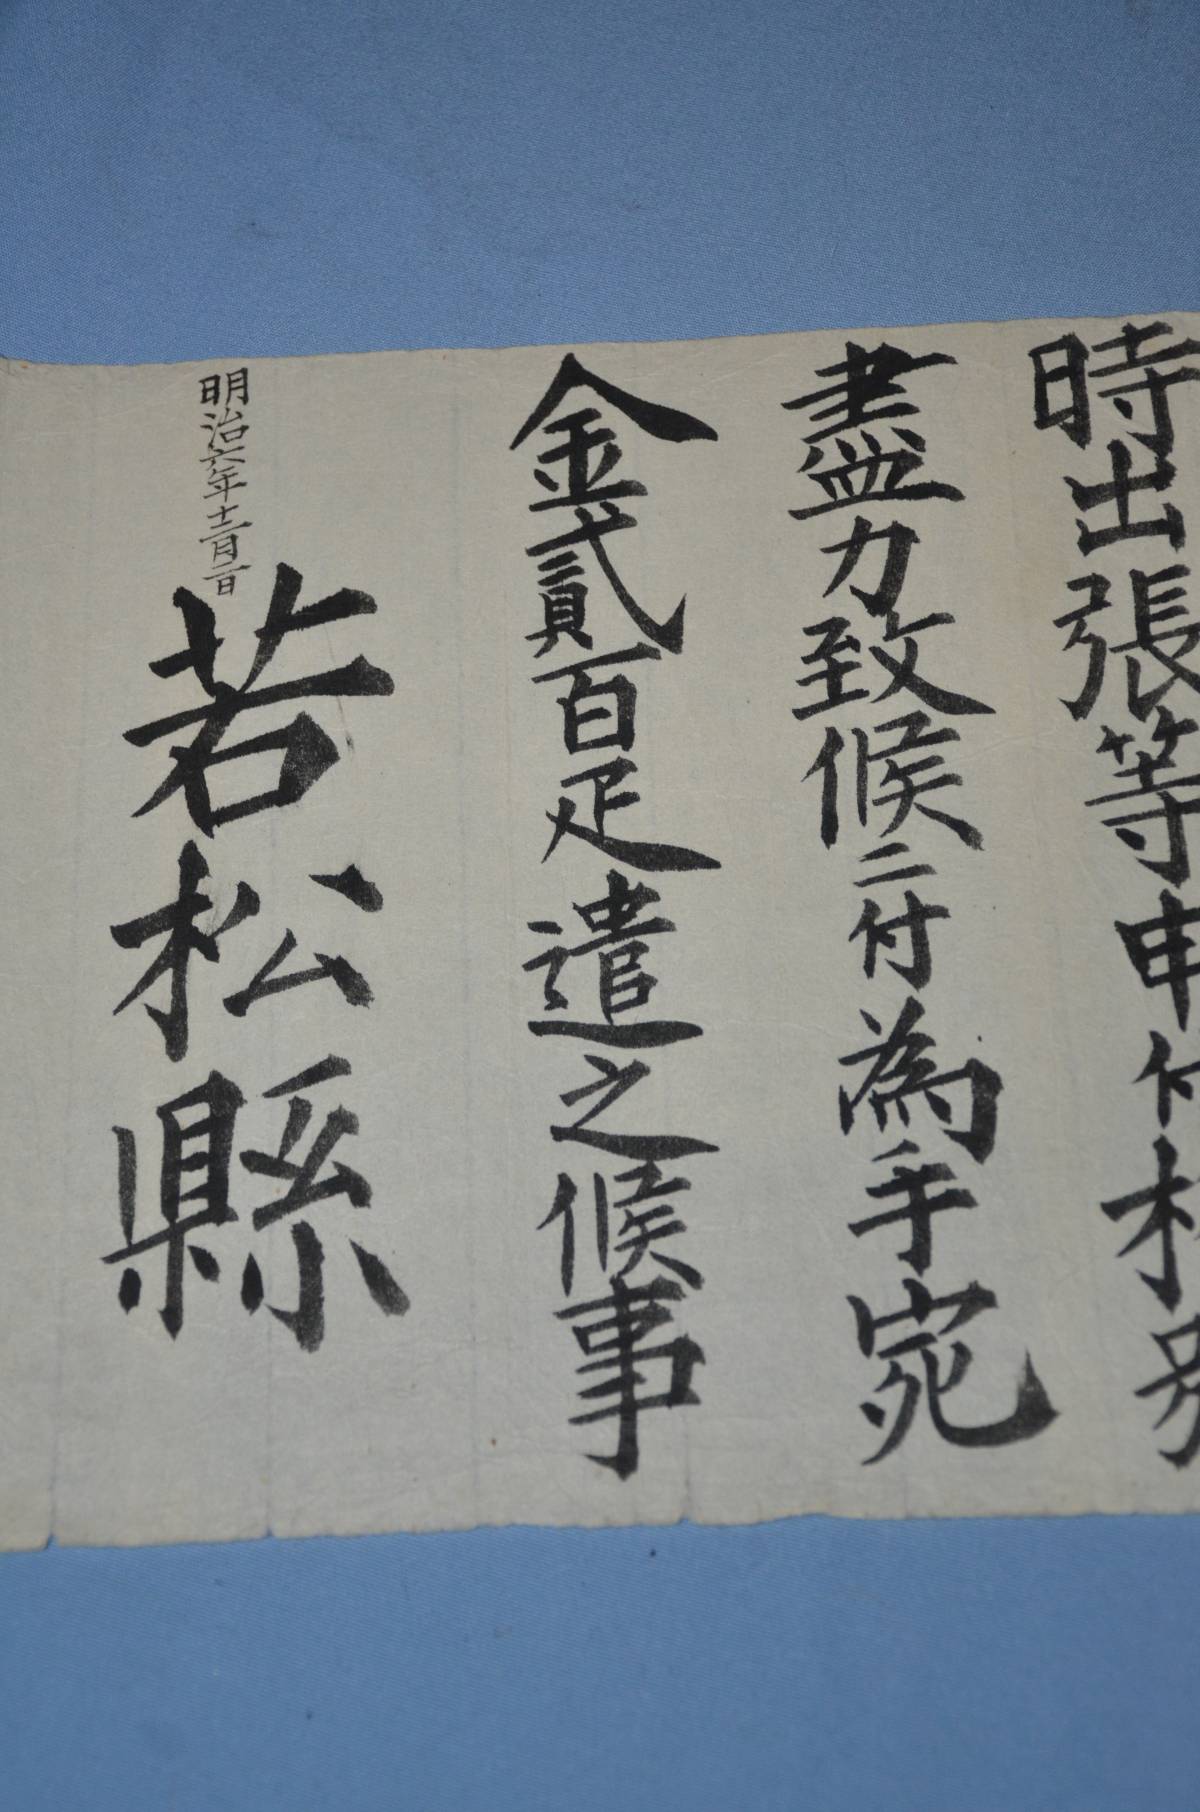 時出張等申付格別
盡力致候ニ付為手宛
金貳百疋遣之候事
明治六年十二月二日
若松縣